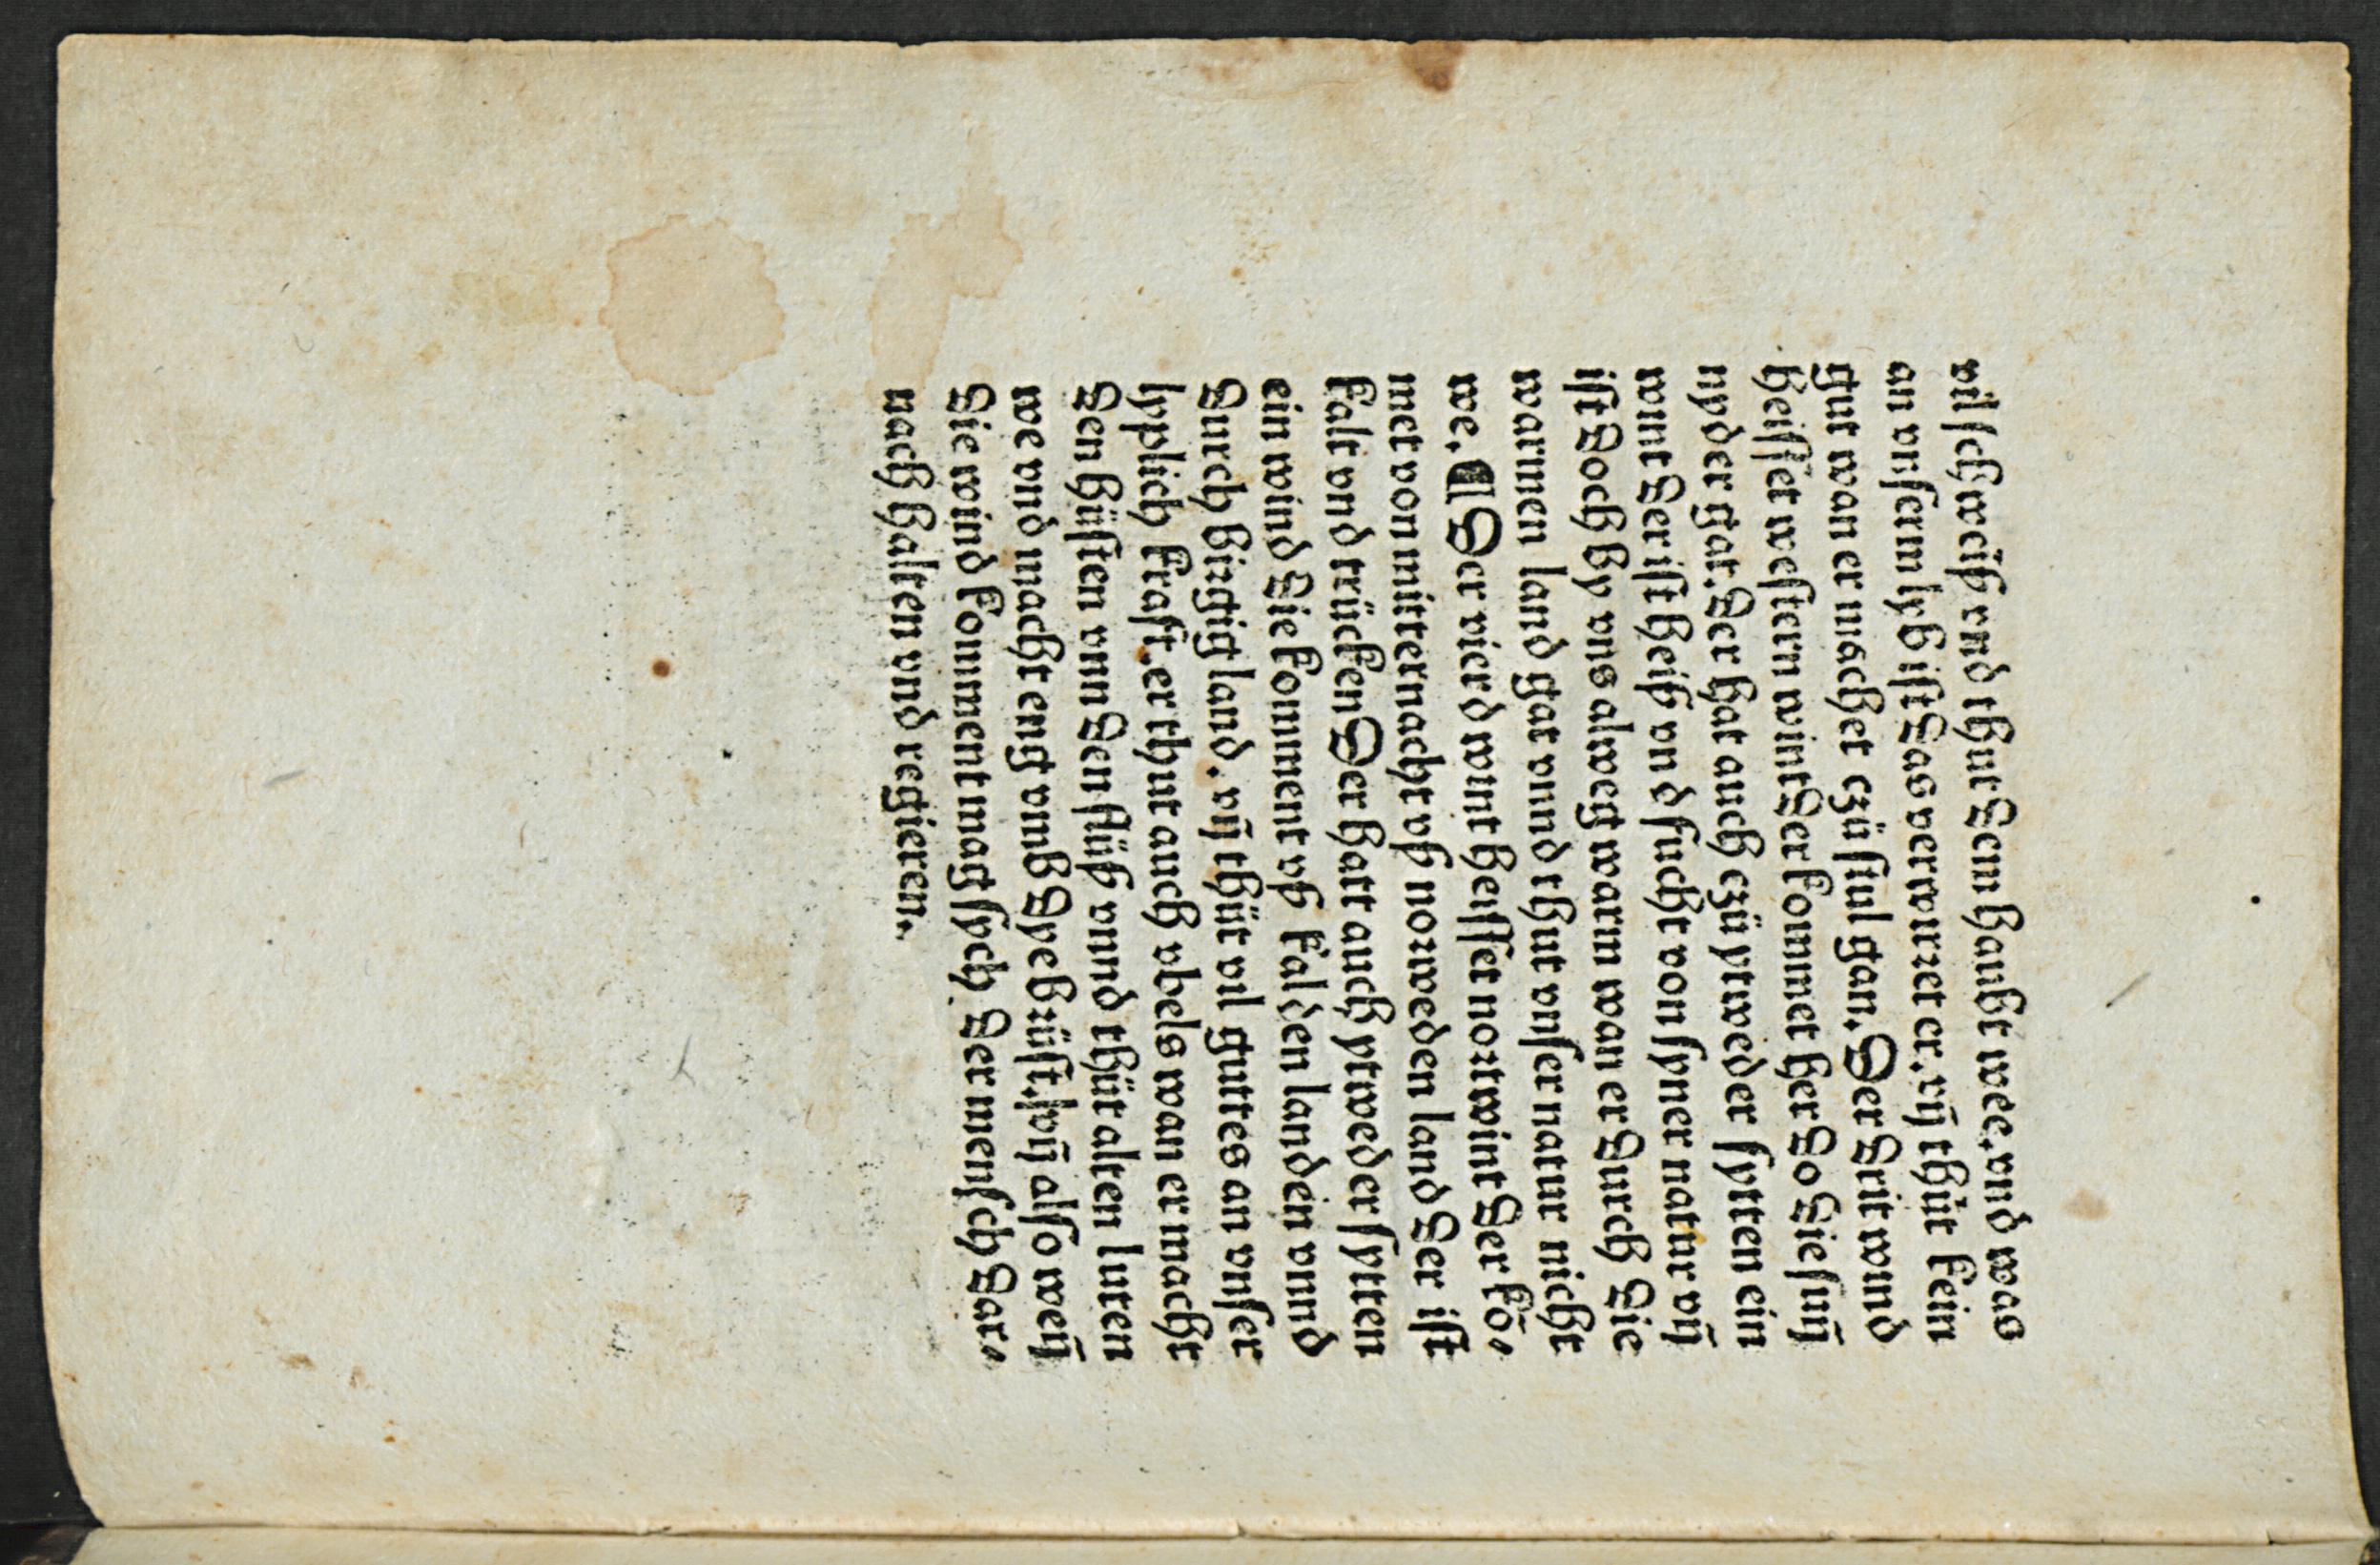 vil schweiß vnd thut dem haubt wee. vnd was
an vnserm lyb ist das verwirret er. vn̄ thůt kein
gut wan er machet czů stul gan. Der drit wind
heisset western wint der kommet her do die sun̄
nyder gat. der hat auch czů ytweder sytten ein
wint der ist heiß vnd fucht von syner natur vn̄
ist doch by vns alweg warm wan er durch die
warmen land gat vnnd thut vnser natur nicht
we. ¶ Der vierd wint heisset nortwint der kō⸗
met von mitternacht vß norweden land der ist
kalt vnd trücken Der hatt auch ytweder sytten
ein wind die komment vß kalden landen vnnd
durch birgig land. vn̄ thůt vil guttes an vnser
lyplich krafft. er thut auch vbels wan er macht
den hůsten vnn den flůß vnnd thůt alten luten
we vnd macht eng vmb dye brüst. wn̄ also wen̄
die wind komment mag sych der mensch dar⸗
nach halten vnd regieren.